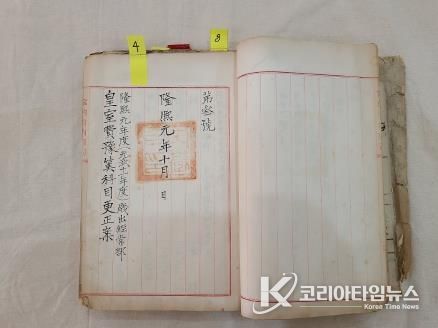 4
8
第叅號
隆熙元年十月 日
隆熙元年度(光武十一年度)歲出經常部
皇室費豫算科目更正案
코리아타임뉴스
Korea Time News